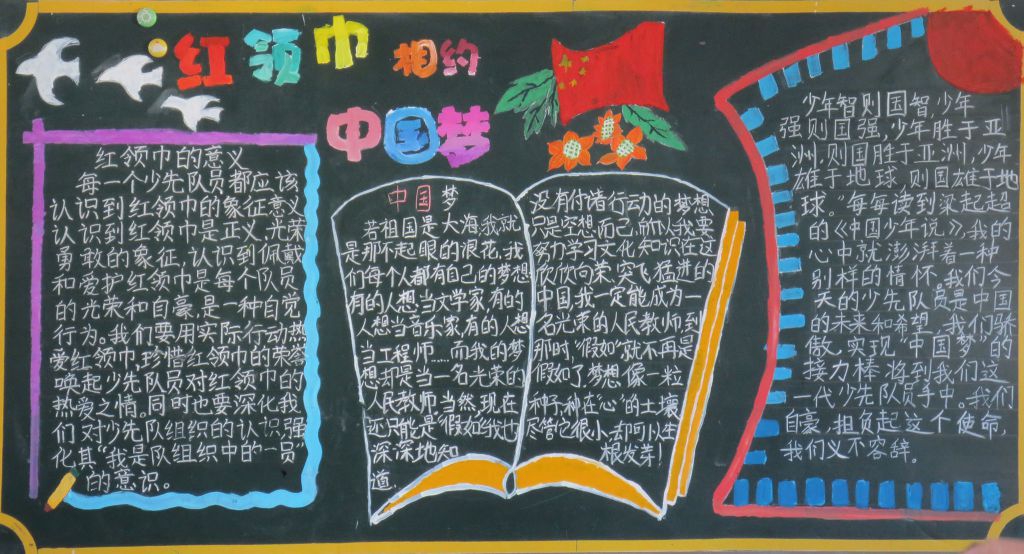 红领巾 相约
中国梦
红领巾的意义
每一个少先队员都应该
认识到红领巾的象征意义
认识到红领巾是正义、光荣
勇敢的象征,认识到佩戴
和爱护红领巾是每个队员
的光荣和自豪,是一种自觉
行为。我们要用实际行动热
爱红领巾,珍惜红领巾的荣誉
唤起少先队员对红领巾的
热爱之情。同时也要深化我
们对少先队组织的认识强
化其“我是队组织中的一员
的意识。
中国梦
若祖国是大海,我就
是那不起眼的浪花,我
们每个人都有自己的梦想
有的人想当文学家,有的
人想当音乐家,有的人想
当工程师……而我的梦
想却是当一名光荣的
人民教师,当然,现在
还只能是“假如”我也
深深地知
道,
没有付诸行动的梦想
只是空想而已,而以我要
努力学习文化知识在这
欣欣向荣、突飞猛进的
中国,我一定能成为一
名光荣的人民教师,到
那时,“假如”就不再是
假如了梦想像一粒
种子,种在“心”的土壤
尽管它很小,却可以生
根发芽!
少年智则国智,少年
强则国强,少年胜于亚
洲,则国胜于亚洲,少年
雄于地球,则国雄于地
球。每每读到梁起超
的《中国少年说》,我的
心中就澎湃着一种
别样的情怀。我们今
天的少先队员是中国
的未来和希望。我们骄
傲,实现“中国梦”的
接力棒将到我们这
一代少先队员手中。我们
自豪,担负起这个使命,
我们义不容辞。